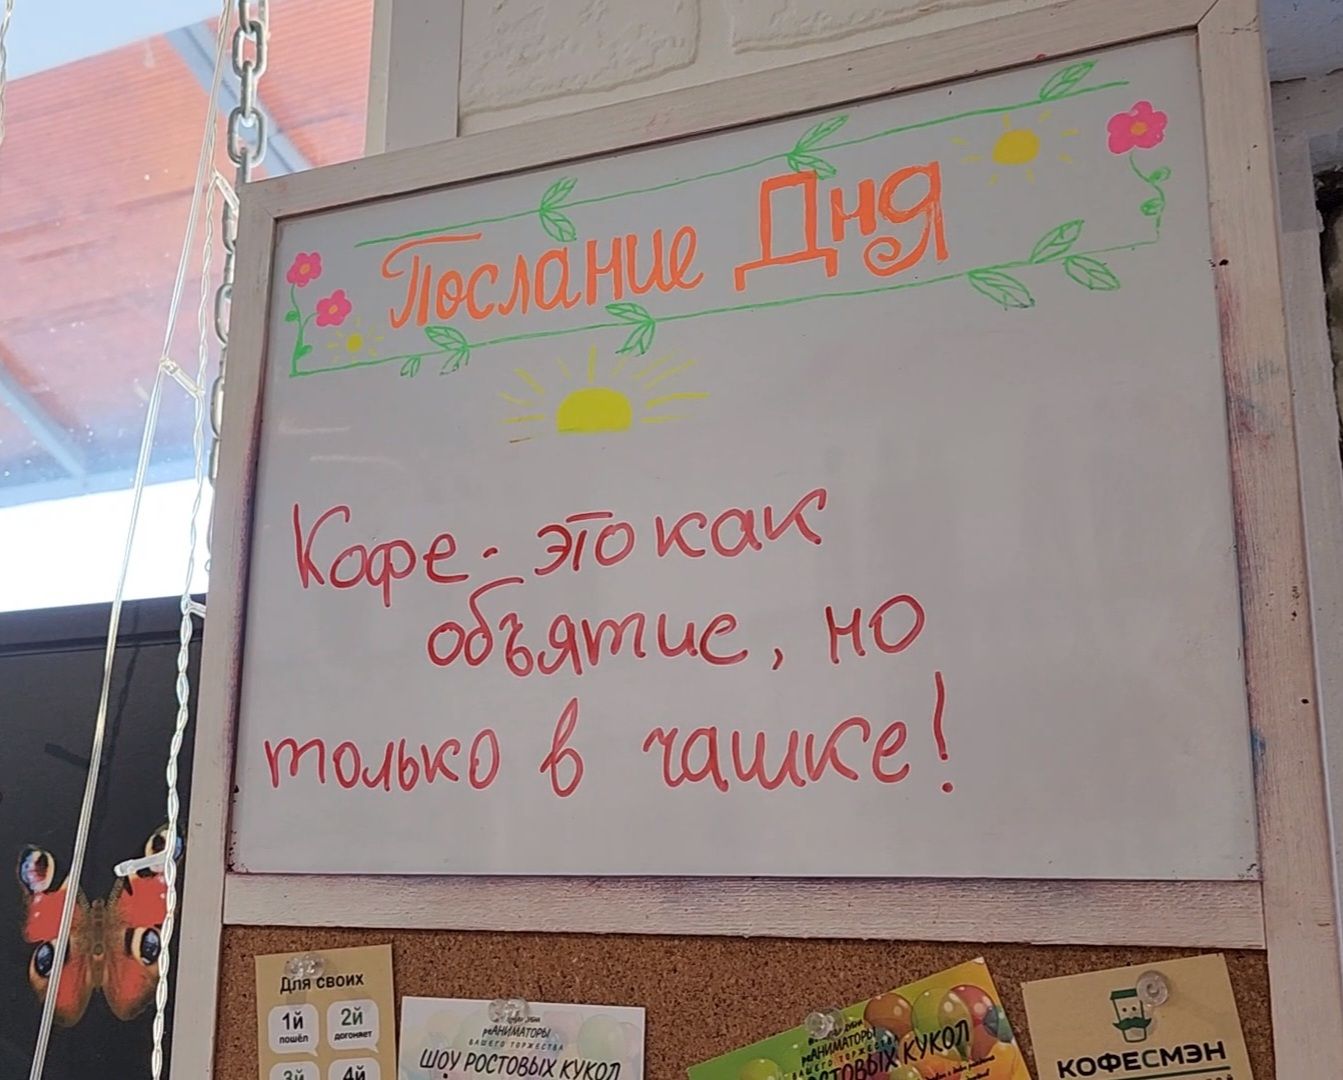 Послание Дня
Кофе - это как
объятие, но
только в чашке!
Для своих
1й
пошёл
2й
догоняет
3й
4й
реАНИМАТОРЫ
ВАШЕГО ТОРЖЕСТВА
ШОУ РОСТОВЫХ КУКОЛ
реАНИМАТОРЫ
ВАШЕГО ТОРЖЕСТВА
РОСТОВЫХ КУКОЛ
КОФЕСМЭН